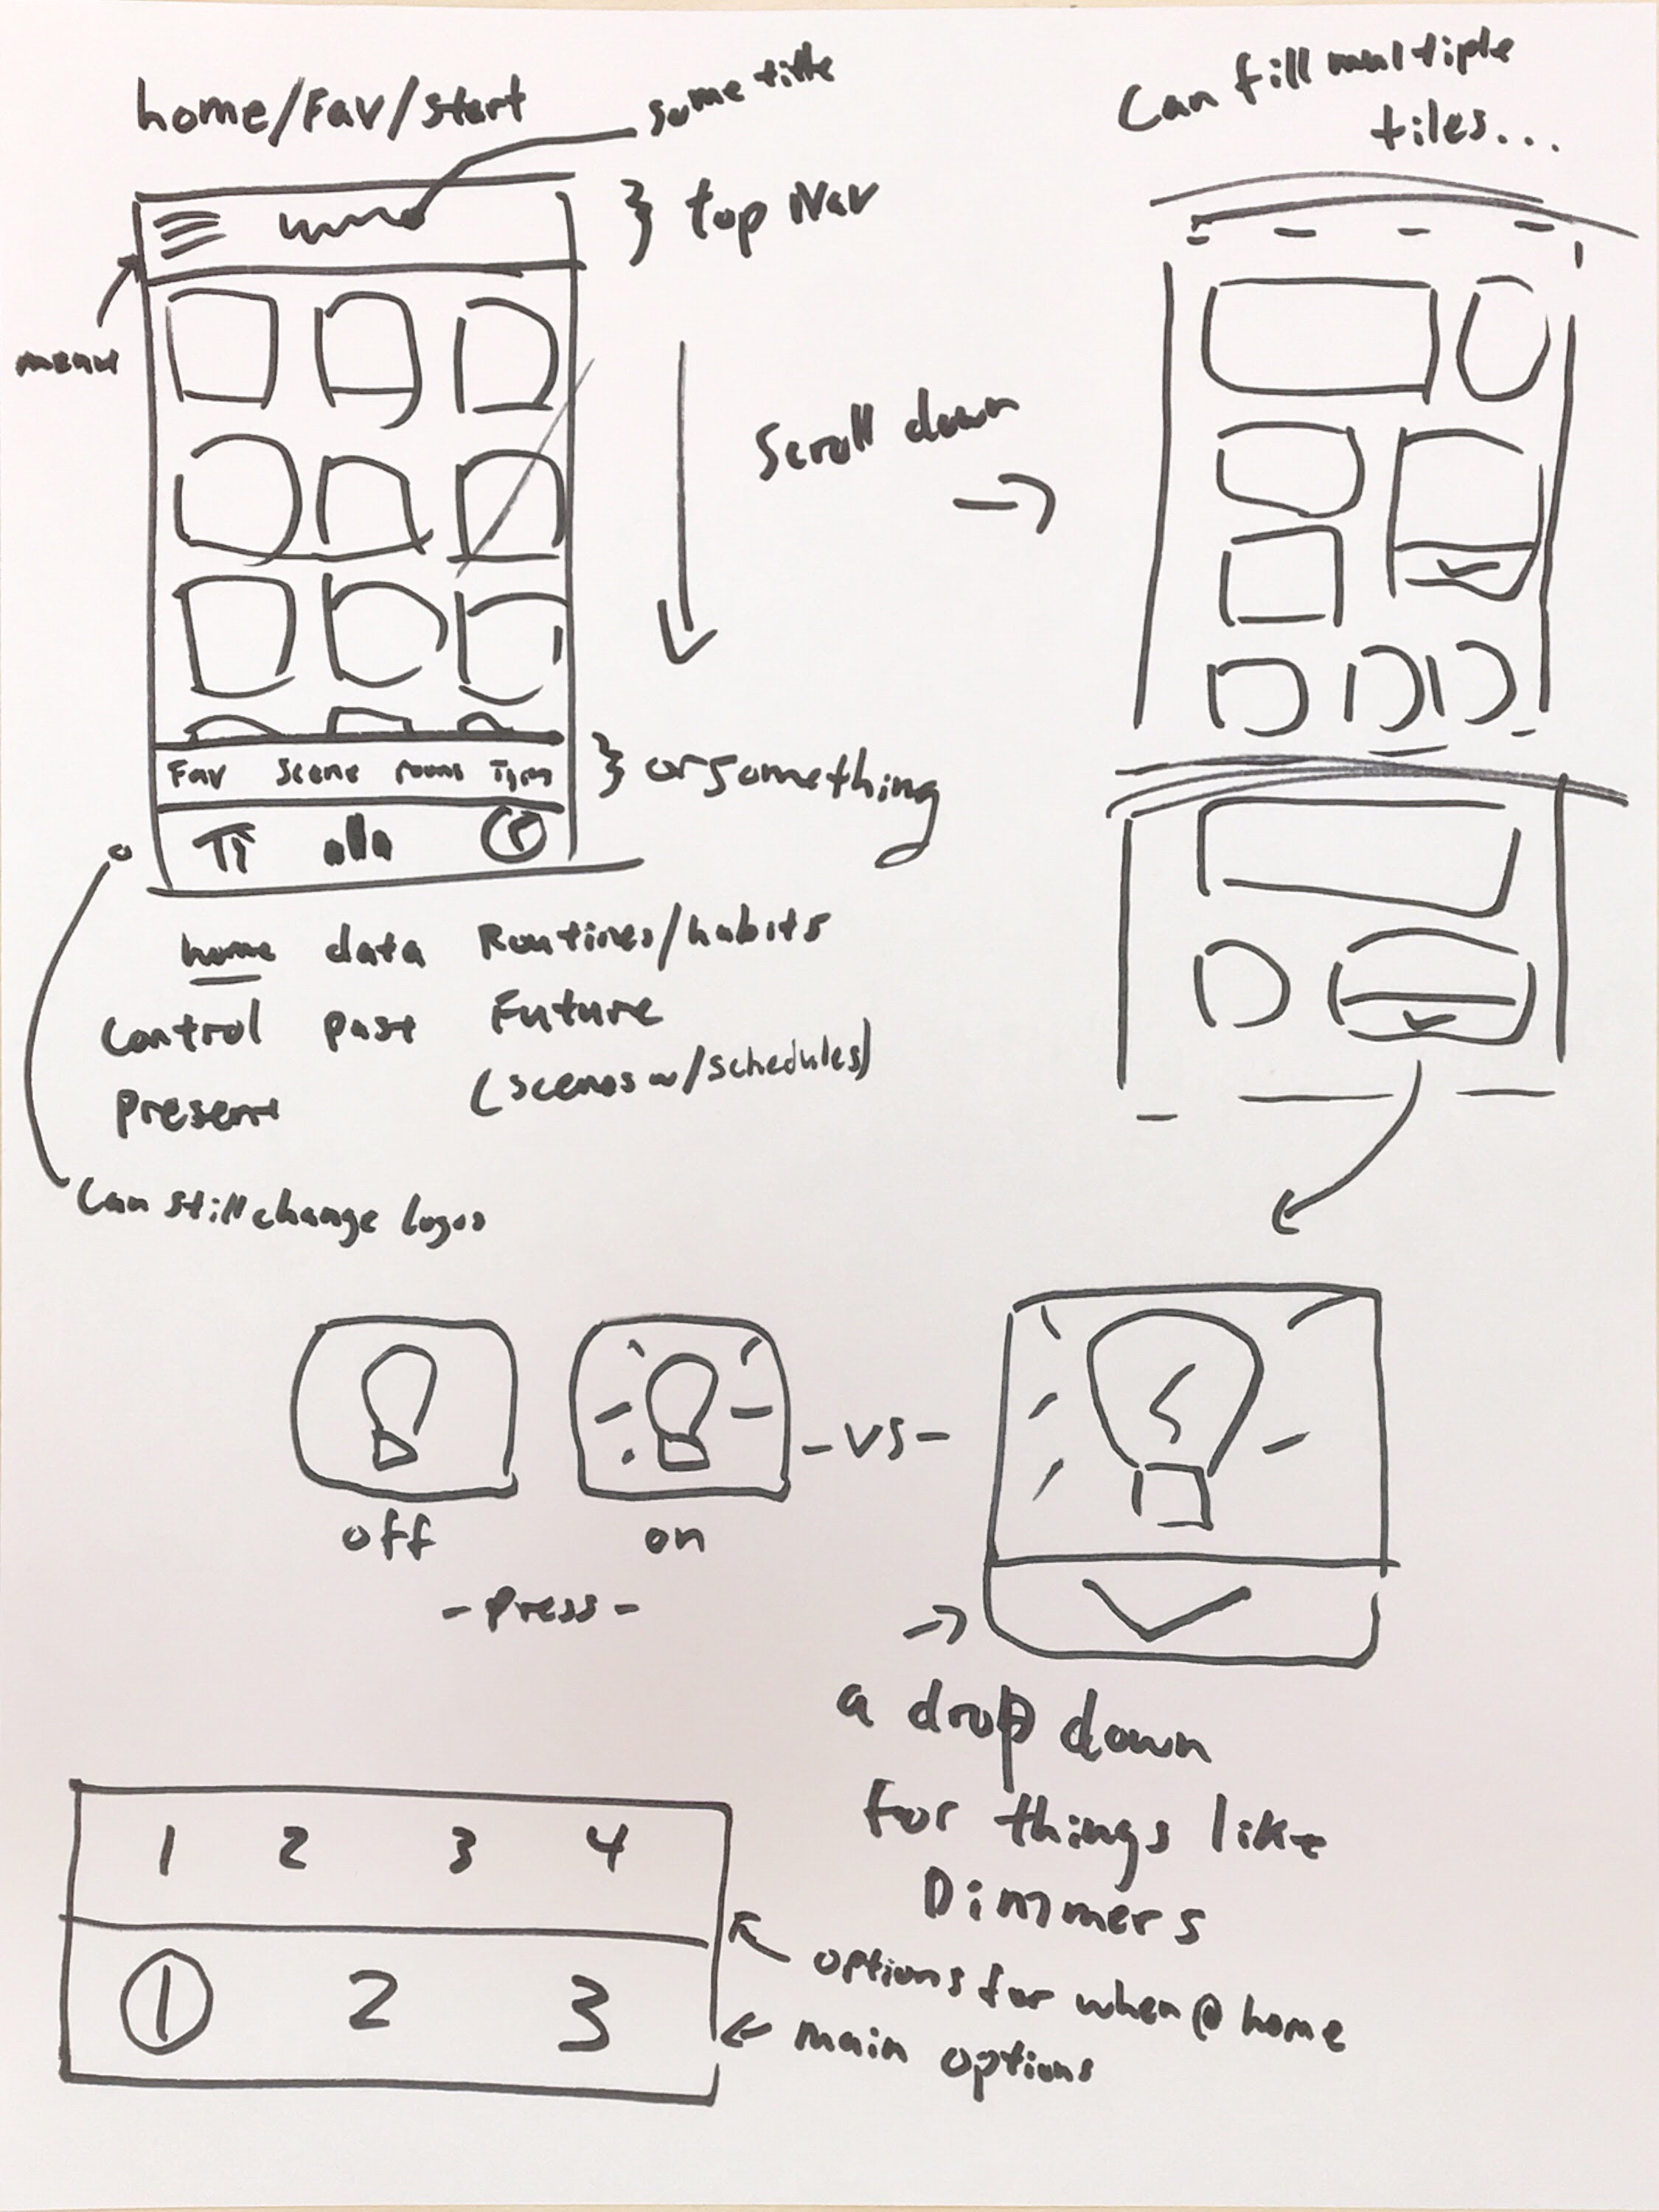 home/Fav/start
some title
Can fill multiple
tiles...
top Nav
menu
Scroll down
Fav Scene rooms
or something
home data Routines/habits
Control past Future
Present (scenes w/schedules)
Can still change logos
off on
-vs-
-Press-
a drop down
for things like
Dimmers
1 2 3 4
1 2 3
options for when @ home
main options